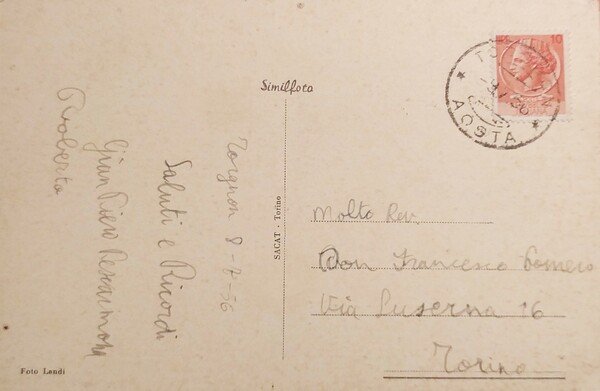 Similfoto
Torgnon 8-7-56
Saluti e Ricordi
Gian Piero
Roberto
SACAT - Torino
Foto Landi
10
TORGNON
AOSTA
Molto Rev.
Don Francesco
Via Luserna 16
Torino